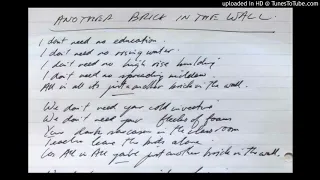 uploaded IN HD @ TunesToTube.com
ANOTHER BRICK IN THE WALL.
I dont need no education.
I don't need no rising water.
I don't need no high rise building
I dont need no spreading mildew
All in all its just another brick in the wall.
We don't need your
We don't need your flecks of foam
dark in the class room
Teacher leave the kids alone.
All in All you're just another brick in the wall.